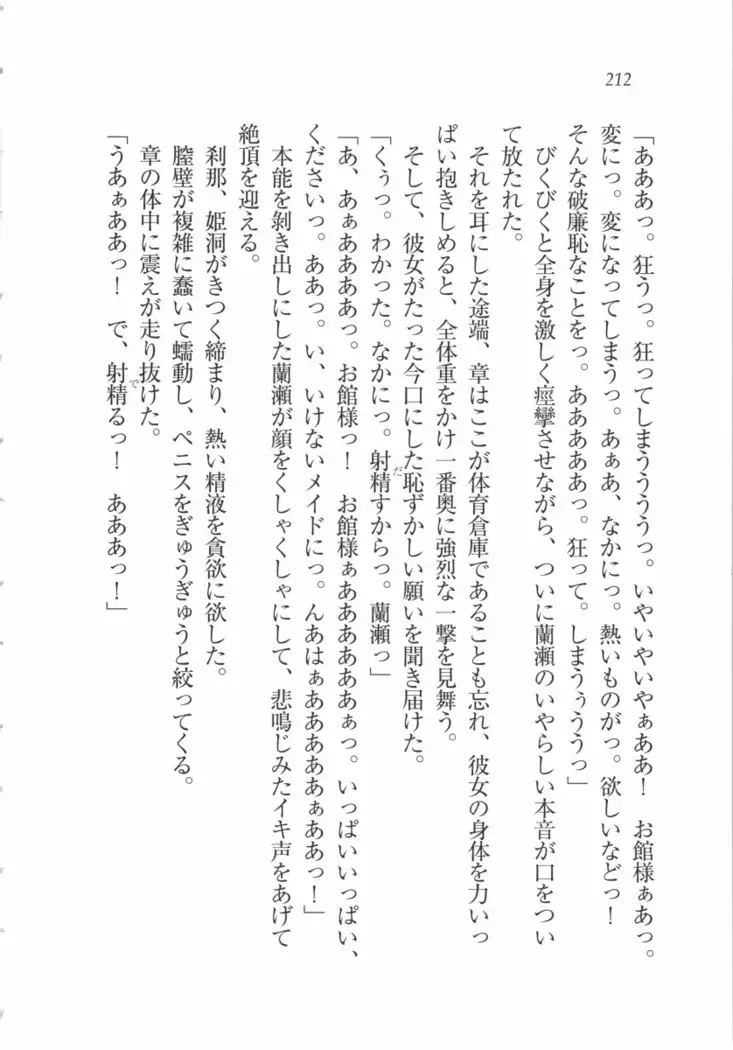 212
「あああっ。狂うっ。狂ってしまうううっ。いやいやいやぁああ！　お館様ぁあっ。
変にっ。変になってしまうっ。あぁあ、なかにっ。熱いものがっ。欲しいなどっ！
そんな破廉恥なことをっ。ああああああっ。狂って。しまうぅううっ」
　びくびくと全身を激しく痙攣させながら、ついに蘭瀬のいやらしい本音が口をつい
て放たれた。
　それを耳にした途端、章はここが体育倉庫であることも忘れ、彼女の身体を力いっ
ぱい抱きしめると、全体重をかけ一番奥に強烈な一撃を見舞う。
　そして、彼女がたった今口にした恥ずかしい願いを聞き届けた。
「くぅっ。わかった。なかにっ。射精すからっ。蘭瀬っ」
「あ、あぁああああっ。お館様っ！　お館様ぁああああああぁっ。いっぱいいっぱい、
くださいっ。ああっ。い、いけないメイドにっ。んあはぁああああああぁああっ！」
　本能を剥き出しにした蘭瀬が顔をくしゃくしゃにして、悲鳴じみたイキ声をあげて
絶頂を迎える。
　刹那、姫洞がきつく締まり、熱い精液を貪欲に欲した。
　膣壁が複雑に蠢いて蠕動し、ペニスをぎゅうぎゅうと絞ってくる。
　章の体中に震えが走り抜けた。
「うあぁああっ！　で、射精るっ！　あああっ！」